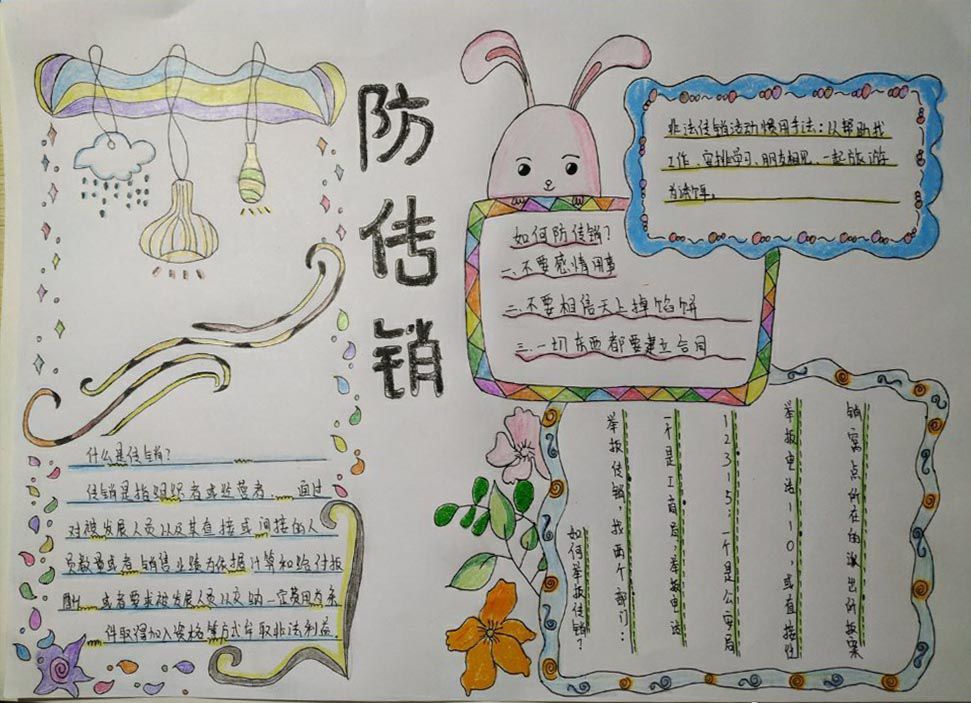 防传销
什么是传销?
传销是指组织者或经营者,通过
对被发展人员以及其直接或间接的人
员数量或者销售业绩为依据计算和给付报
酬,或者要求被发展人员以交纳一定费用为条
件取得加入资格等方式牟取非法利益.
如何防传销?
一、不要感情用事
二、不要相信天上掉馅饼
三、一切东西都要建立合同
非法传销活动惯用手法:以帮助找
工作、安排学习、朋友相见、一起旅游
为诱饵。
如何举报传销?
举报传销,找两个部门:
一个是工商局,举报电话
12315;一个是公安局
举报电话110,或直接住
销窝点所在的派出所报案